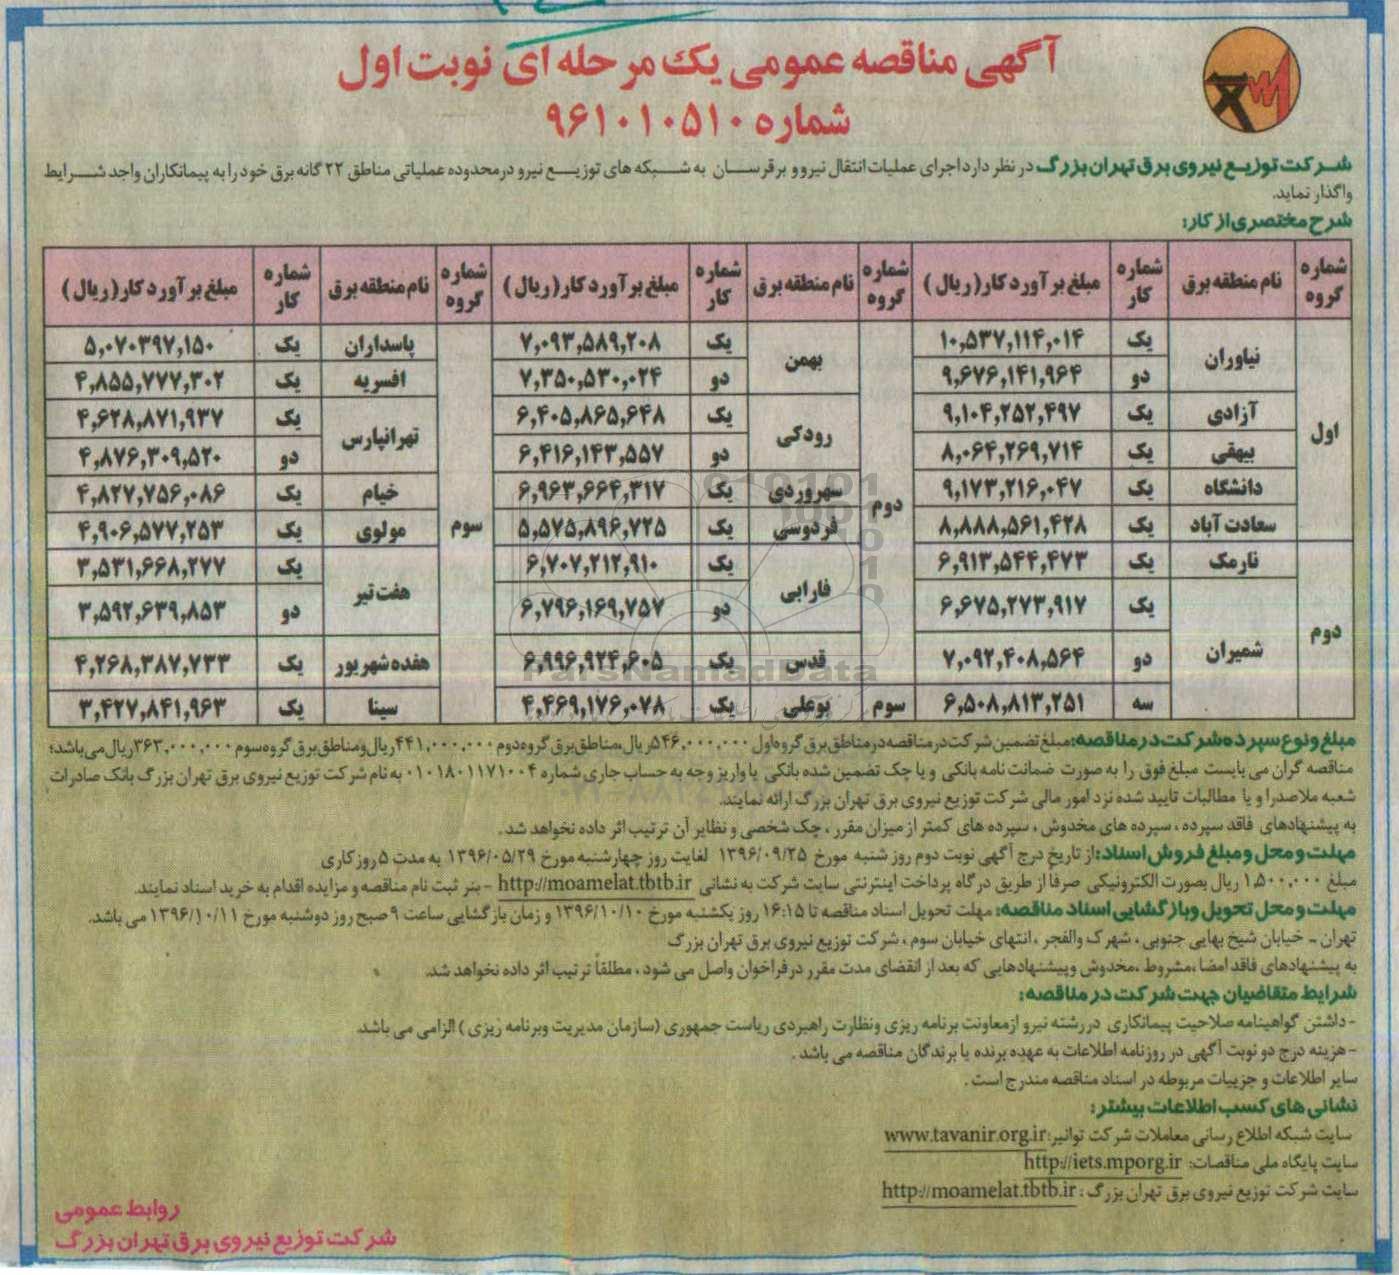 آگهی مناقصه عمومی یک مرحله ای نوبت اول
شماره ۹۶۱۰۱۰۵۱۰
شرکت توزیع نیروی برق تهران بزرگ در نظر دارد اجرای عملیات انتقال نیرو و برقرسان به شبکه های توزیع نیرو در محدوده عملیاتی مناطق ۲۲ گانه برق خود را به پیمانکاران واجد شرایط
واگذار نماید.
شرح مختصری از کار:
شماره گروه | نام منطقه برق | شماره کار | مبلغ برآورد کار (ریال) | شماره گروه | نام منطقه برق | شماره کار | مبلغ برآورد کار (ریال) | شماره گروه | نام منطقه برق | شماره کار | مبلغ برآورد کار (ریال)
اول | نیاوران | یک | ۱۰,۵۳۷,۱۱۴,۰۱۴ | دوم | بهمن | یک | ۷,۰۹۳,۵۸۹,۲۰۸ | سوم | پاسداران | یک | ۵,۰۷۰۳۹۷,۱۵۰
دو | ۹,۶۷۶,۱۴۱,۹۶۴ | دو | ۷,۳۵۰,۵۳۰,۰۲۴ | افسریه | یک | ۴,۸۵۵,۷۷۷,۳۰۲
آزادی | یک | ۹,۱۰۴,۲۵۲,۴۹۷ | رودکی | یک | ۶,۴۰۵,۸۶۵,۶۴۸ | تهرانپارس | یک | ۴,۶۲۸,۸۷۱,۹۳۷
بیهقی | یک | ۸,۰۶۴,۲۶۹,۷۱۴ | دو | ۶,۴۱۶,۱۴۳,۵۵۷ | دو | ۴,۸۷۶,۳۰۹,۵۲۰
دانشگاه | یک | ۹,۱۷۳,۲۱۶,۰۴۷ | سهروردی | یک | ۶,۹۶۳,۶۶۴,۳۱۷ | خیام | یک | ۴,۸۲۷,۷۵۶,۰۸۶
سعادت آباد | یک | ۸,۸۸۸,۵۶۱,۴۲۸ | فردوسی | یک | ۵,۵۷۵,۸۹۶,۷۲۵ | مولوی | یک | ۴,۹۰۶,۵۷۷,۲۵۳
دوم | نارمک | یک | ۶,۹۱۳,۵۴۴,۴۷۳ | فارابی | یک | ۶,۷۰۷,۲۱۲,۹۱۰ | هفت تیر | یک | ۳,۵۳۱,۶۶۸,۲۷۷
شمیران | یک | ۶,۶۷۵,۲۷۳,۹۱۷ | دو | ۶,۷۹۶,۱۶۹,۷۵۷ | دو | ۳,۵۹۲,۶۳۹,۸۵۳
دو | ۷,۰۹۲,۴۰۸,۵۶۴ | قدس | یک | ۶,۹۹۶,۹۲۴,۶۰۵ | هفده شهریور | یک | ۴,۲۶۸,۳۸۷,۷۳۳
سه | ۶,۵۰۸,۸۱۳,۲۵۱ | سوم | بوعلی | یک | ۴,۴۶۹,۱۷۶,۰۷۸ | سینا | یک | ۳,۴۲۷,۸۴۱,۹۶۳
ParsNamadData
مبلغ و نوع سپرده شرکت در مناقصه: مبلغ تضمین شرکت در مناقصه در مناطق برق گروه اول ۵۴۶,۰۰۰,۰۰۰ ریال، مناطق برق گروه دوم ۴۴۱,۰۰۰,۰۰۰ ریال و مناطق برق گروه سوم ۳۶۳,۰۰۰,۰۰۰ ریال می باشد؛
مناقصه گران می بایست مبلغ فوق را به صورت ضمانت نامه بانکی و یا چک تضمین شده بانکی یا واریز وجه به حساب جاری شماره ۰۱۰۱۸۰۱۱۷۱۰۰۴ به نام شرکت توزیع نیروی برق تهران بزرگ بانک صادرات
شعبه ملاصدرا و یا مطالبات تایید شده نزد امور مالی شرکت توزیع نیروی برق تهران بزرگ ارائه نمایند.
به پیشنهادهای فاقد سپرده، سپرده های مخدوش، سپرده های کمتر از میزان مقرر، چک شخصی و نظایر آن ترتیب اثر داده نخواهد شد.
مهلت و محل و مبلغ فروش اسناد: از تاریخ درج آگهی نوبت دوم روز شنبه مورخ ۱۳۹۶/۰۹/۲۵ لغایت روز چهارشنبه مورخ ۱۳۹۶/۰۵/۲۹ به مدت ۵ روز کاری
مبلغ ۱,۵۰۰,۰۰۰ ریال بصورت الکترونیکی صرفا از طریق درگاه پرداخت اینترنتی سایت شرکت به نشانی http://moamelat.tbtb.ir -بنر ثبت نام مناقصه و مزایده اقدام به خرید اسناد نمایند.
مهلت و محل تحویل و بازگشایی اسناد مناقصه: مهلت تحویل اسناد مناقصه تا ۱۶:۱۵ روز یکشنبه مورخ ۱۳۹۶/۱۰/۱۰ و زمان بازگشایی ساعت ۹ صبح روز دوشنبه مورخ ۱۳۹۶/۱۰/۱۱ می باشد.
تهران - خیابان شیخ بهایی جنوبی، شهرک والفجر، انتهای خیابان سوم، شرکت توزیع نیروی برق تهران بزرگ
به پیشنهادهای فاقد امضا، مشروط، مخدوش و پیشنهادهایی که بعد از انقضای مدت مقرر در فراخوان واصل می شود، مطلقاً ترتیب اثر داده نخواهد شد.
شرایط متقاضیان جهت شرکت در مناقصه:
-داشتن گواهینامه صلاحیت پیمانکاری در رشته نیرو از معاونت برنامه ریزی ونظارت راهبردی ریاست جمهوری (سازمان مدیریت وبرنامه ریزی) الزامی می باشد.
-هزینه درج دو نوبت آگهی در روزنامه اطلاعات به عهده برنده یا برندگان مناقصه می باشد.
سایر اطلاعات و جزییات مربوطه در اسناد مناقصه مندرج است.
نشانی های کسب اطلاعات بیشتر:
سایت شبکه اطلاع رسانی معاملات شرکت توانیر: www.tavanir.org.ir
سایت پایگاه ملی مناقصات: http://iets.mporg.ir
سایت شرکت توزیع نیروی برق تهران بزرگ: http://moamelat.tbtb.ir
روابط عمومی
شرکت توزیع نیروی برق تهران بزرگ